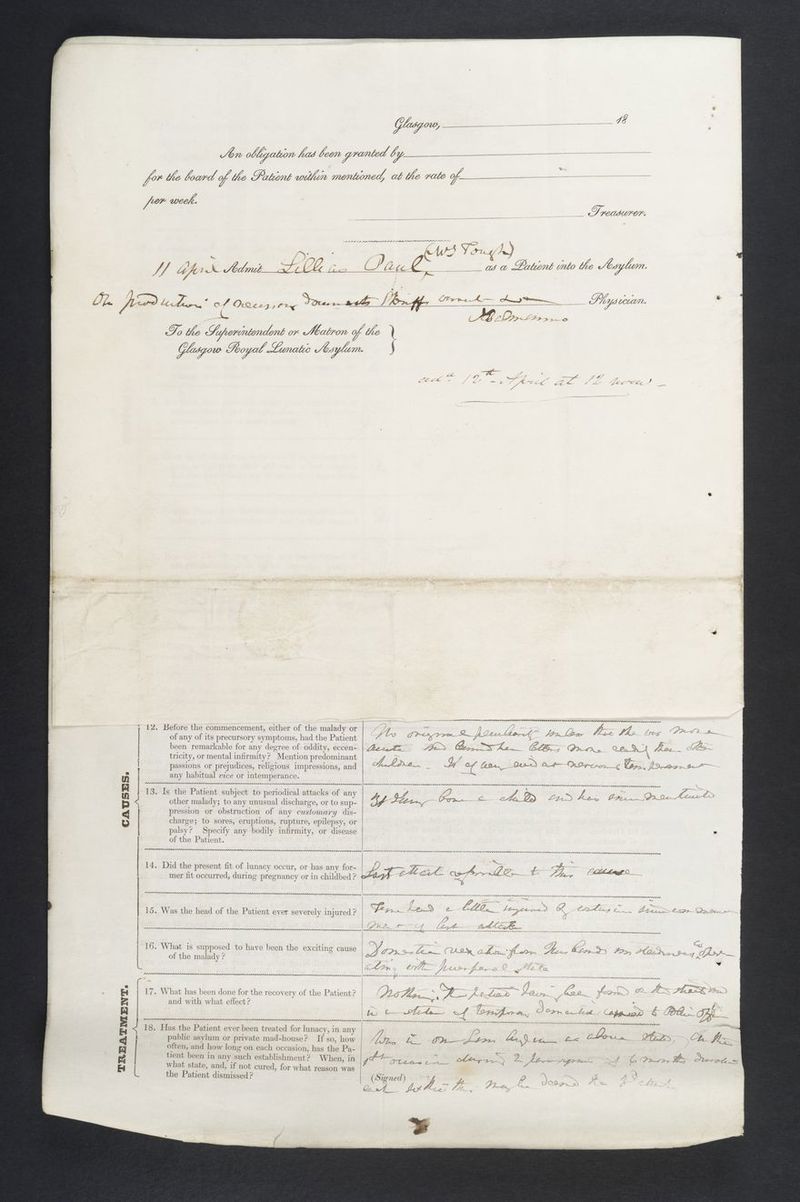 Glasgow, 18
An obligation has been granted by
for the board of the Patient within mentioned, at the rate of
per week.
Treasurer.
(Mrs Tough)
11 April Admit Lillias Paul as a Patient into the Asylum.
On production of necessary documents Physician.
To the Superintendent or Matron of the
Glasgow Royal Lunatic Asylum.
add. 12th April at 12 noon
CAUSES.
12. Before the commencement, either of the malady or
of any of its precursory symptoms, had the Patient
been remarkable for any degree of oddity, eccen-
tricity, or mental infirmity? Mention predominant
passions or prejudices, religious impressions, and
any habitual vice or intemperance.
No original peculiarity unless that she was more
acute and learned her letters more readily than other
children. Is of a and nervous temperament
13. Is the Patient subject to periodical attacks of any
other malady; to any unusual discharge, or to sup-
pression or obstruction of any customary dis-
charge; to sores, eruptions, rupture, epilepsy, or
palsy? Specify any bodily infirmity, or disease
of the Patient.
born a child and has since menstruated
14. Did the present fit of lunacy occur, or has any for-
mer fit occurred, during pregnancy or in childbed?
Last attack to this cause
15. Was the head of the Patient ever severely injured?
head a little injured by since commence
ment of last attack
16. What is supposed to have been the exciting cause
of the malady?
Domestic vexation from husbands unsteadiness oper-
ating with puerperal state
TREATMENT.
17. What has been done for the recovery of the Patient?
and with what effect?
Nothing. The patient having been found on the street and
in a state of temporary to Police Office
18. Has the Patient ever been treated for lunacy, in any
public asylum or private mad-house? If so, how
often, and how long on each occasion, has the Pa-
tient been in any such establishment? When, in
what state, and, if not cured, for what reason was
the Patient dismissed?
Was in Asylum as above stated. On the
1st occasion during 2 of 6 months
(Signed)
each so that this may be the 3d attack